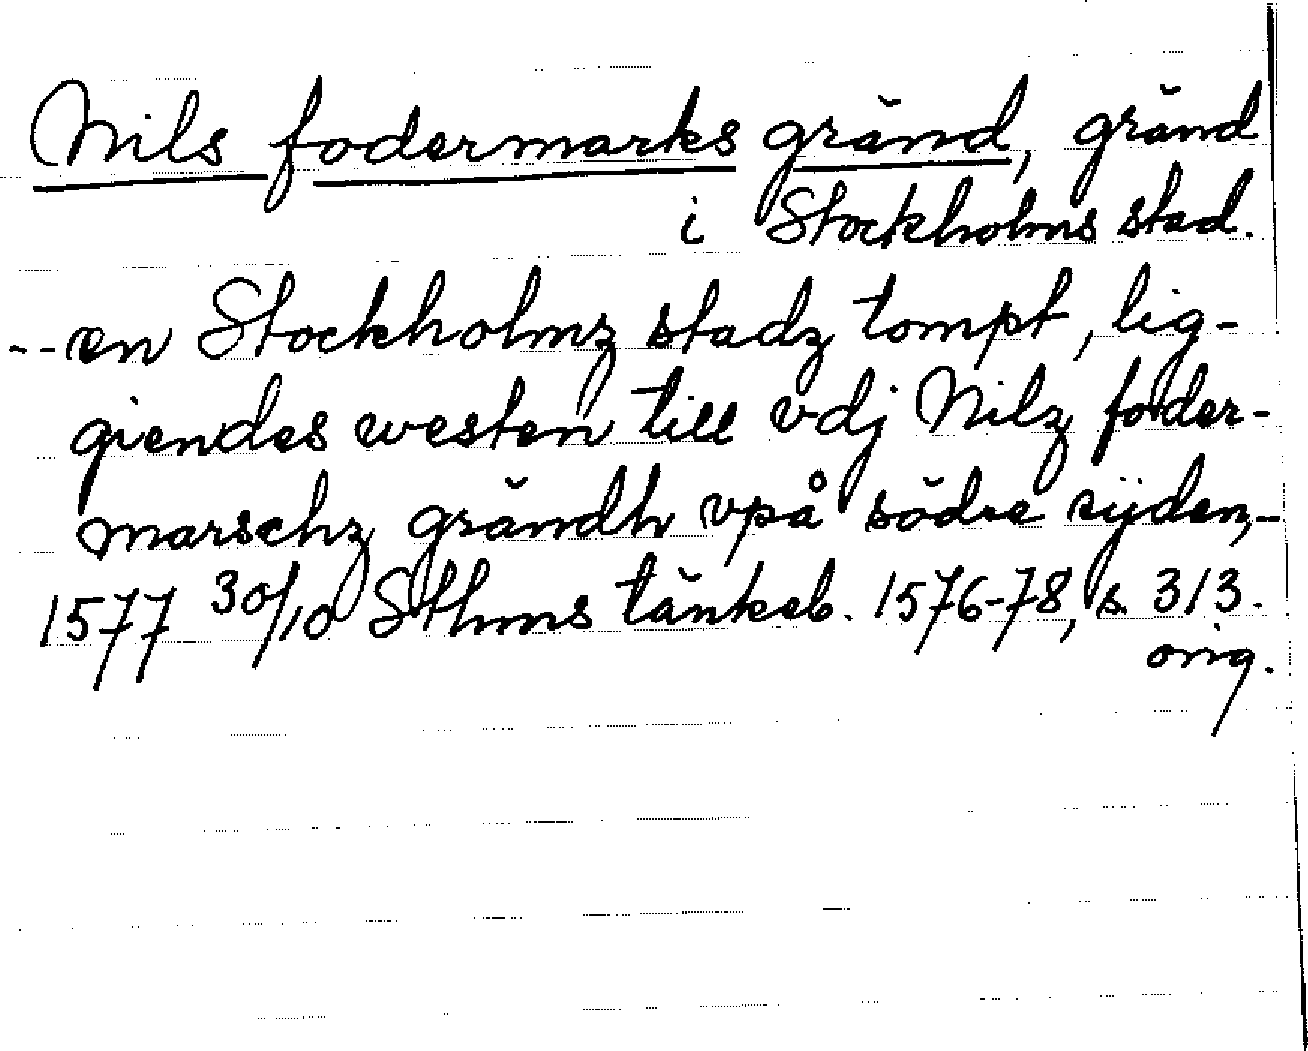 Nils fodermarks gränd, gränd
i Stockholms stad.
-- en Stockholmz stadz tompt, lig-
giendes westen till vdj Nilz foder-
marschz grändh vpå södre sijden, -
1577 30/10 Sthms tänkeb. 1576-78, s. 313.
orig.